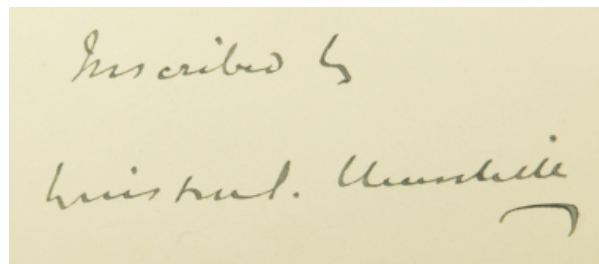 Inscribed by
Winston S. Churchill